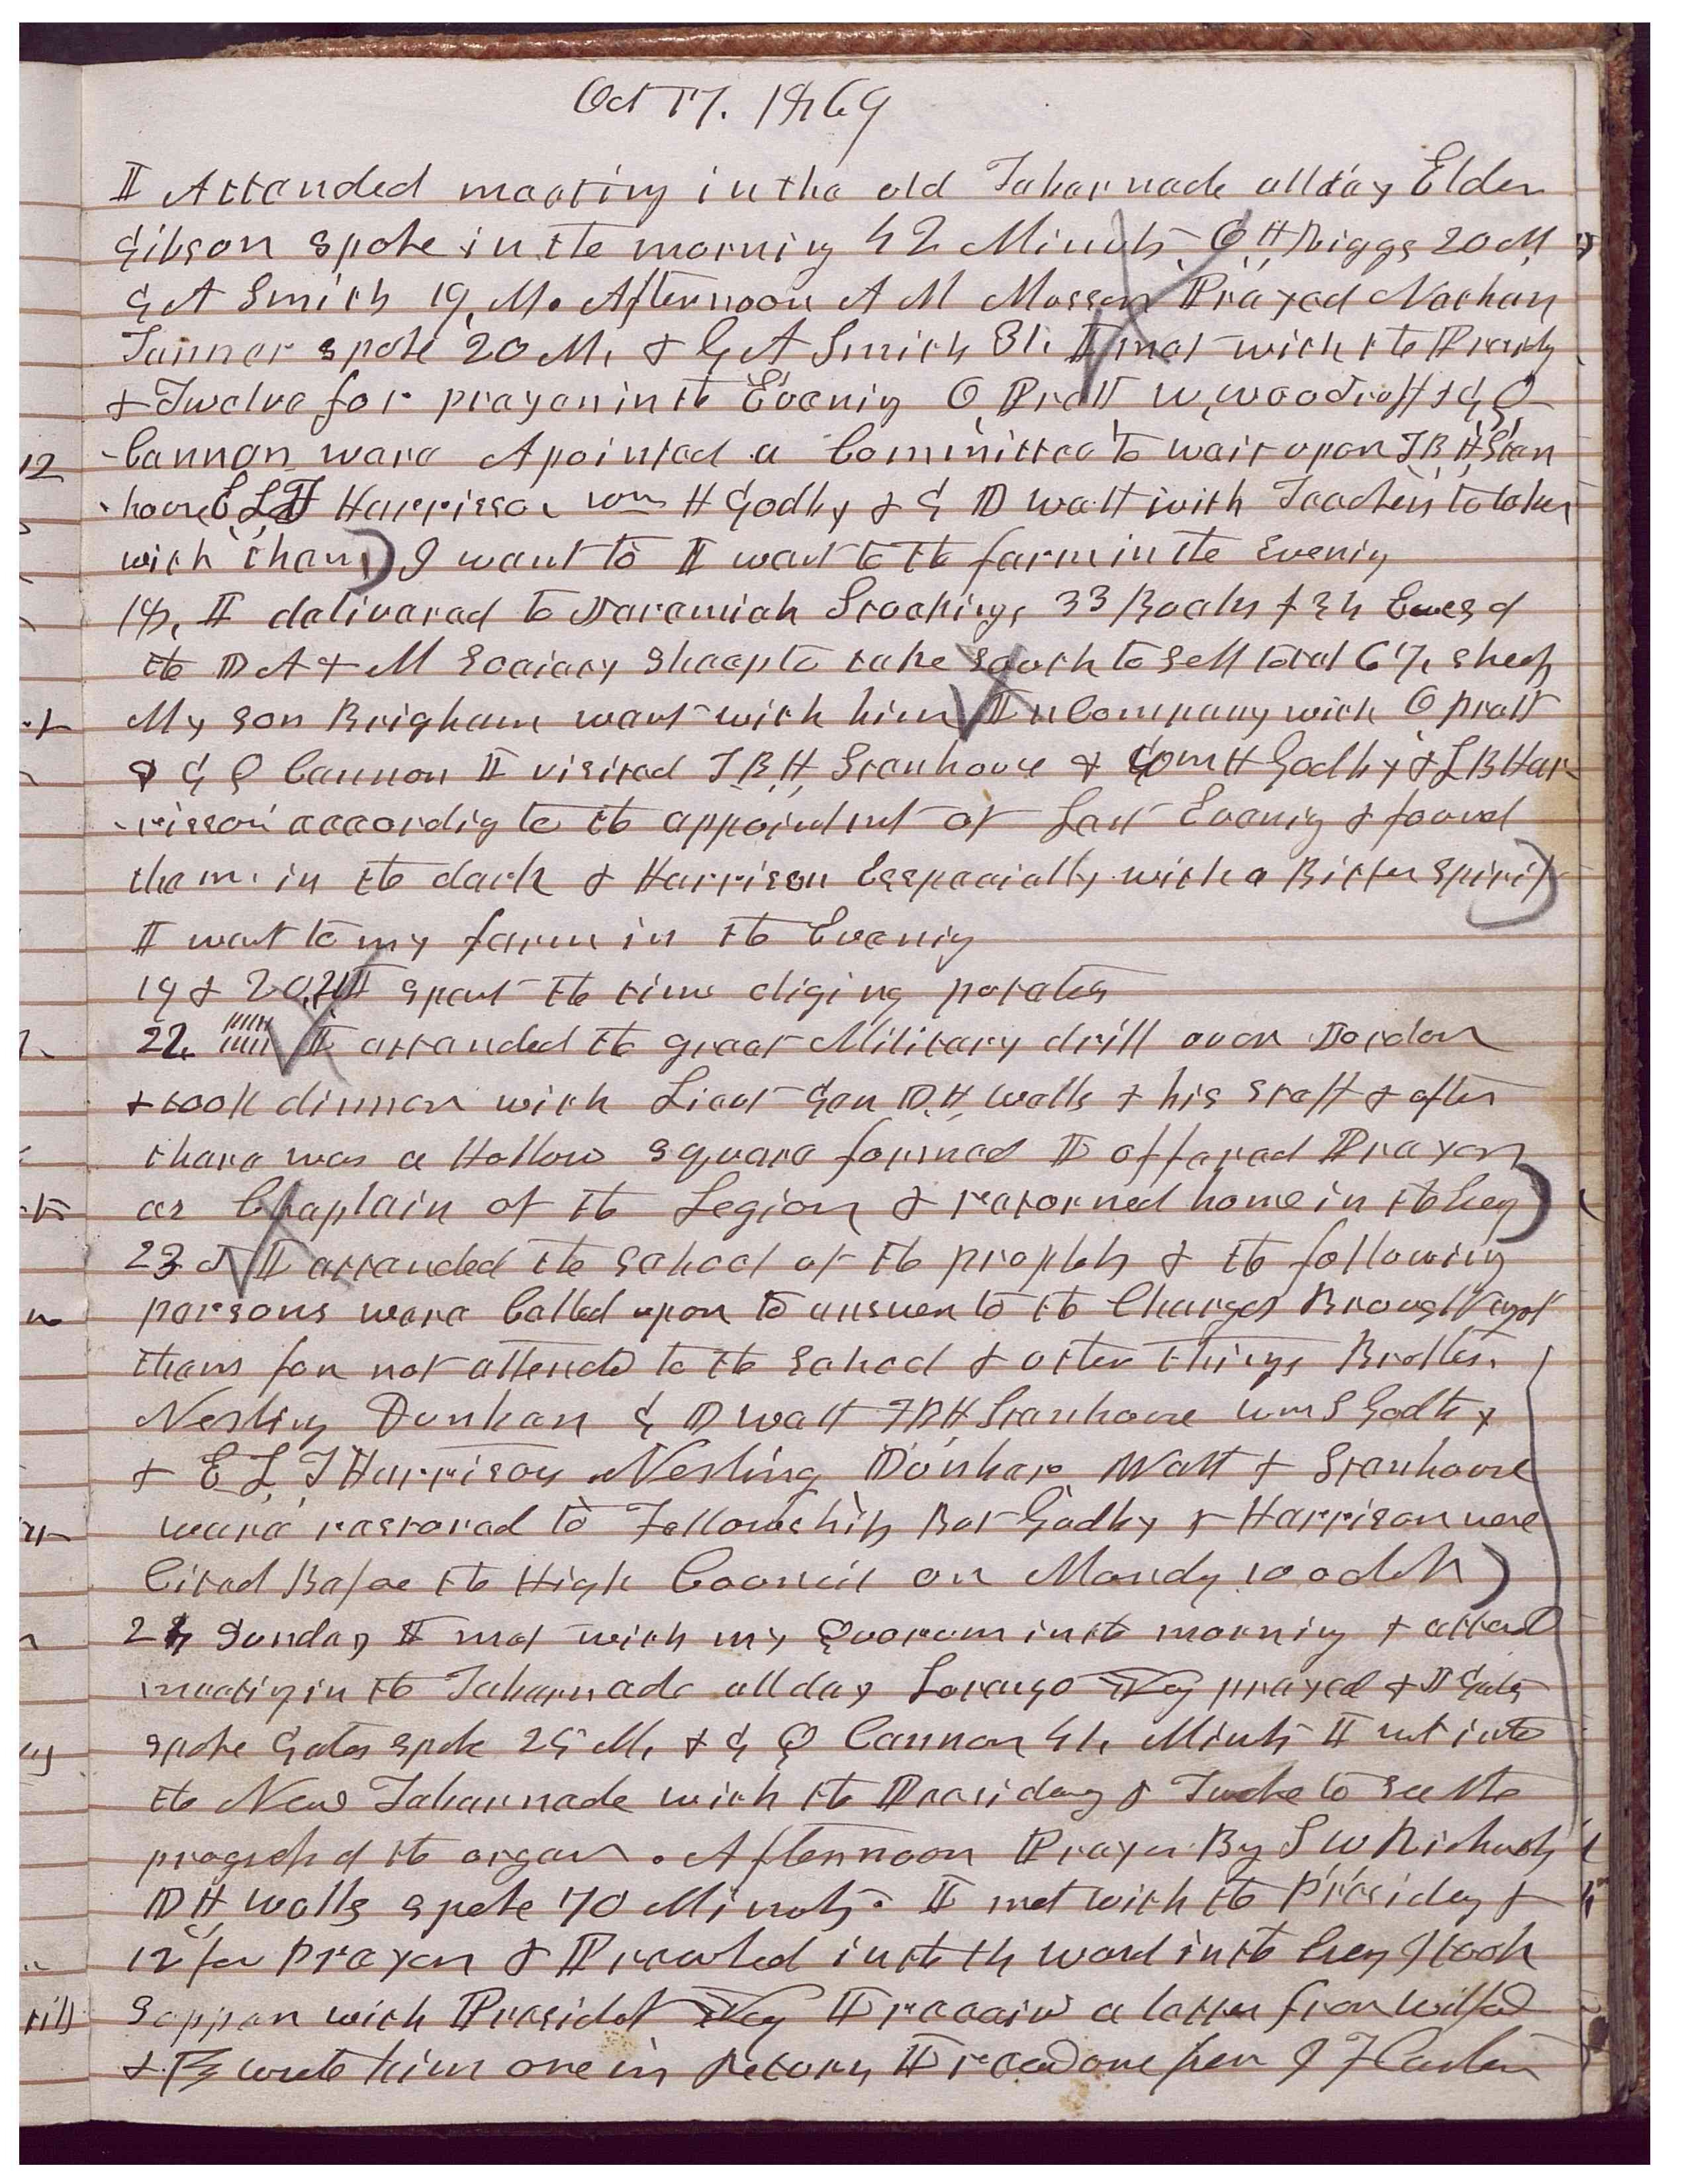 Oct 17. 1869
I Attended meeting in the old Tabernacle all day Elder
Gibson spoke in the morning 42 Minuts. C. H. Riggs 20 M
G A Smith 19, M. Afternoon A M Musser Prayed Nathan
Tanner spoke 20 M. & G. A Smith 31. I met with the Presidy
& Twelve for prayer in the Evening O Pratt W, Woodruff & G Q
Cannon ware Apointed a Committee to wait upon T B H Sten
house E L T Harrisson Wm H Godby & G D Watt with Teachers to labor
with them) I went to I went to the farm in the Evenig
18, I delivered to Jeremiah Stocking, 33 Bucks & 34 Ewes of
the D A & M Society Sheep to take South to Sell total 67, sheep
My son Brigham went with him In Company with O Pratt
& G Q Cannon I visited T B H, Stenhouse & Wm H Godby & L B Har-
-risson accordig to the appointmt of Last Evenig & found
them in the dark & Harrison Especially with a Bitter Spirit)
I went to my farm in the Evenig
19 & 20, 21 I spent the time diging potatos
22. I attended the great Military drill over Jordon
& took dinner with Lieut Gen D. H, Wells & his Staff & after
there was a Hollow Square formed I offered Prayer
as Chaplain of the Legion & returned home in the Eveg)
23d I attended the School of the prophets & the following
persons were Called upon to answer to the Charges Brought agst
them for not attendg to the School & other things Brothers
Nesling Dunkan G D Watt T B H Stenhouse Wm S Godby
& E L, T Harrison. Nesling Dunkan Watt & Stenhouse
ware restored to Fellowship But Godby & Harrison were
Cited Before the High Council on Mondy
24 Sunday I met with my Quorum in the morning & attend
meetig in the Tabernacle all day Lorenzo prayed & J Gates
spoke Gates spoke 25 M, & G Q Cannon 41, Minuts I wt into
the New Tabernacle with the Presidency & Twelve to see the
progress of the organ. Afternoon Prayer By S W Richards
D H Wells spoke 70 Minuts. I met with the Presidey &
12 for Prayer & Preached in the 14 ward in the Eveg I took
Supper with Presidet I receivd a letter from Wilford
& wrote him one in Return I recevd one from J F Carter